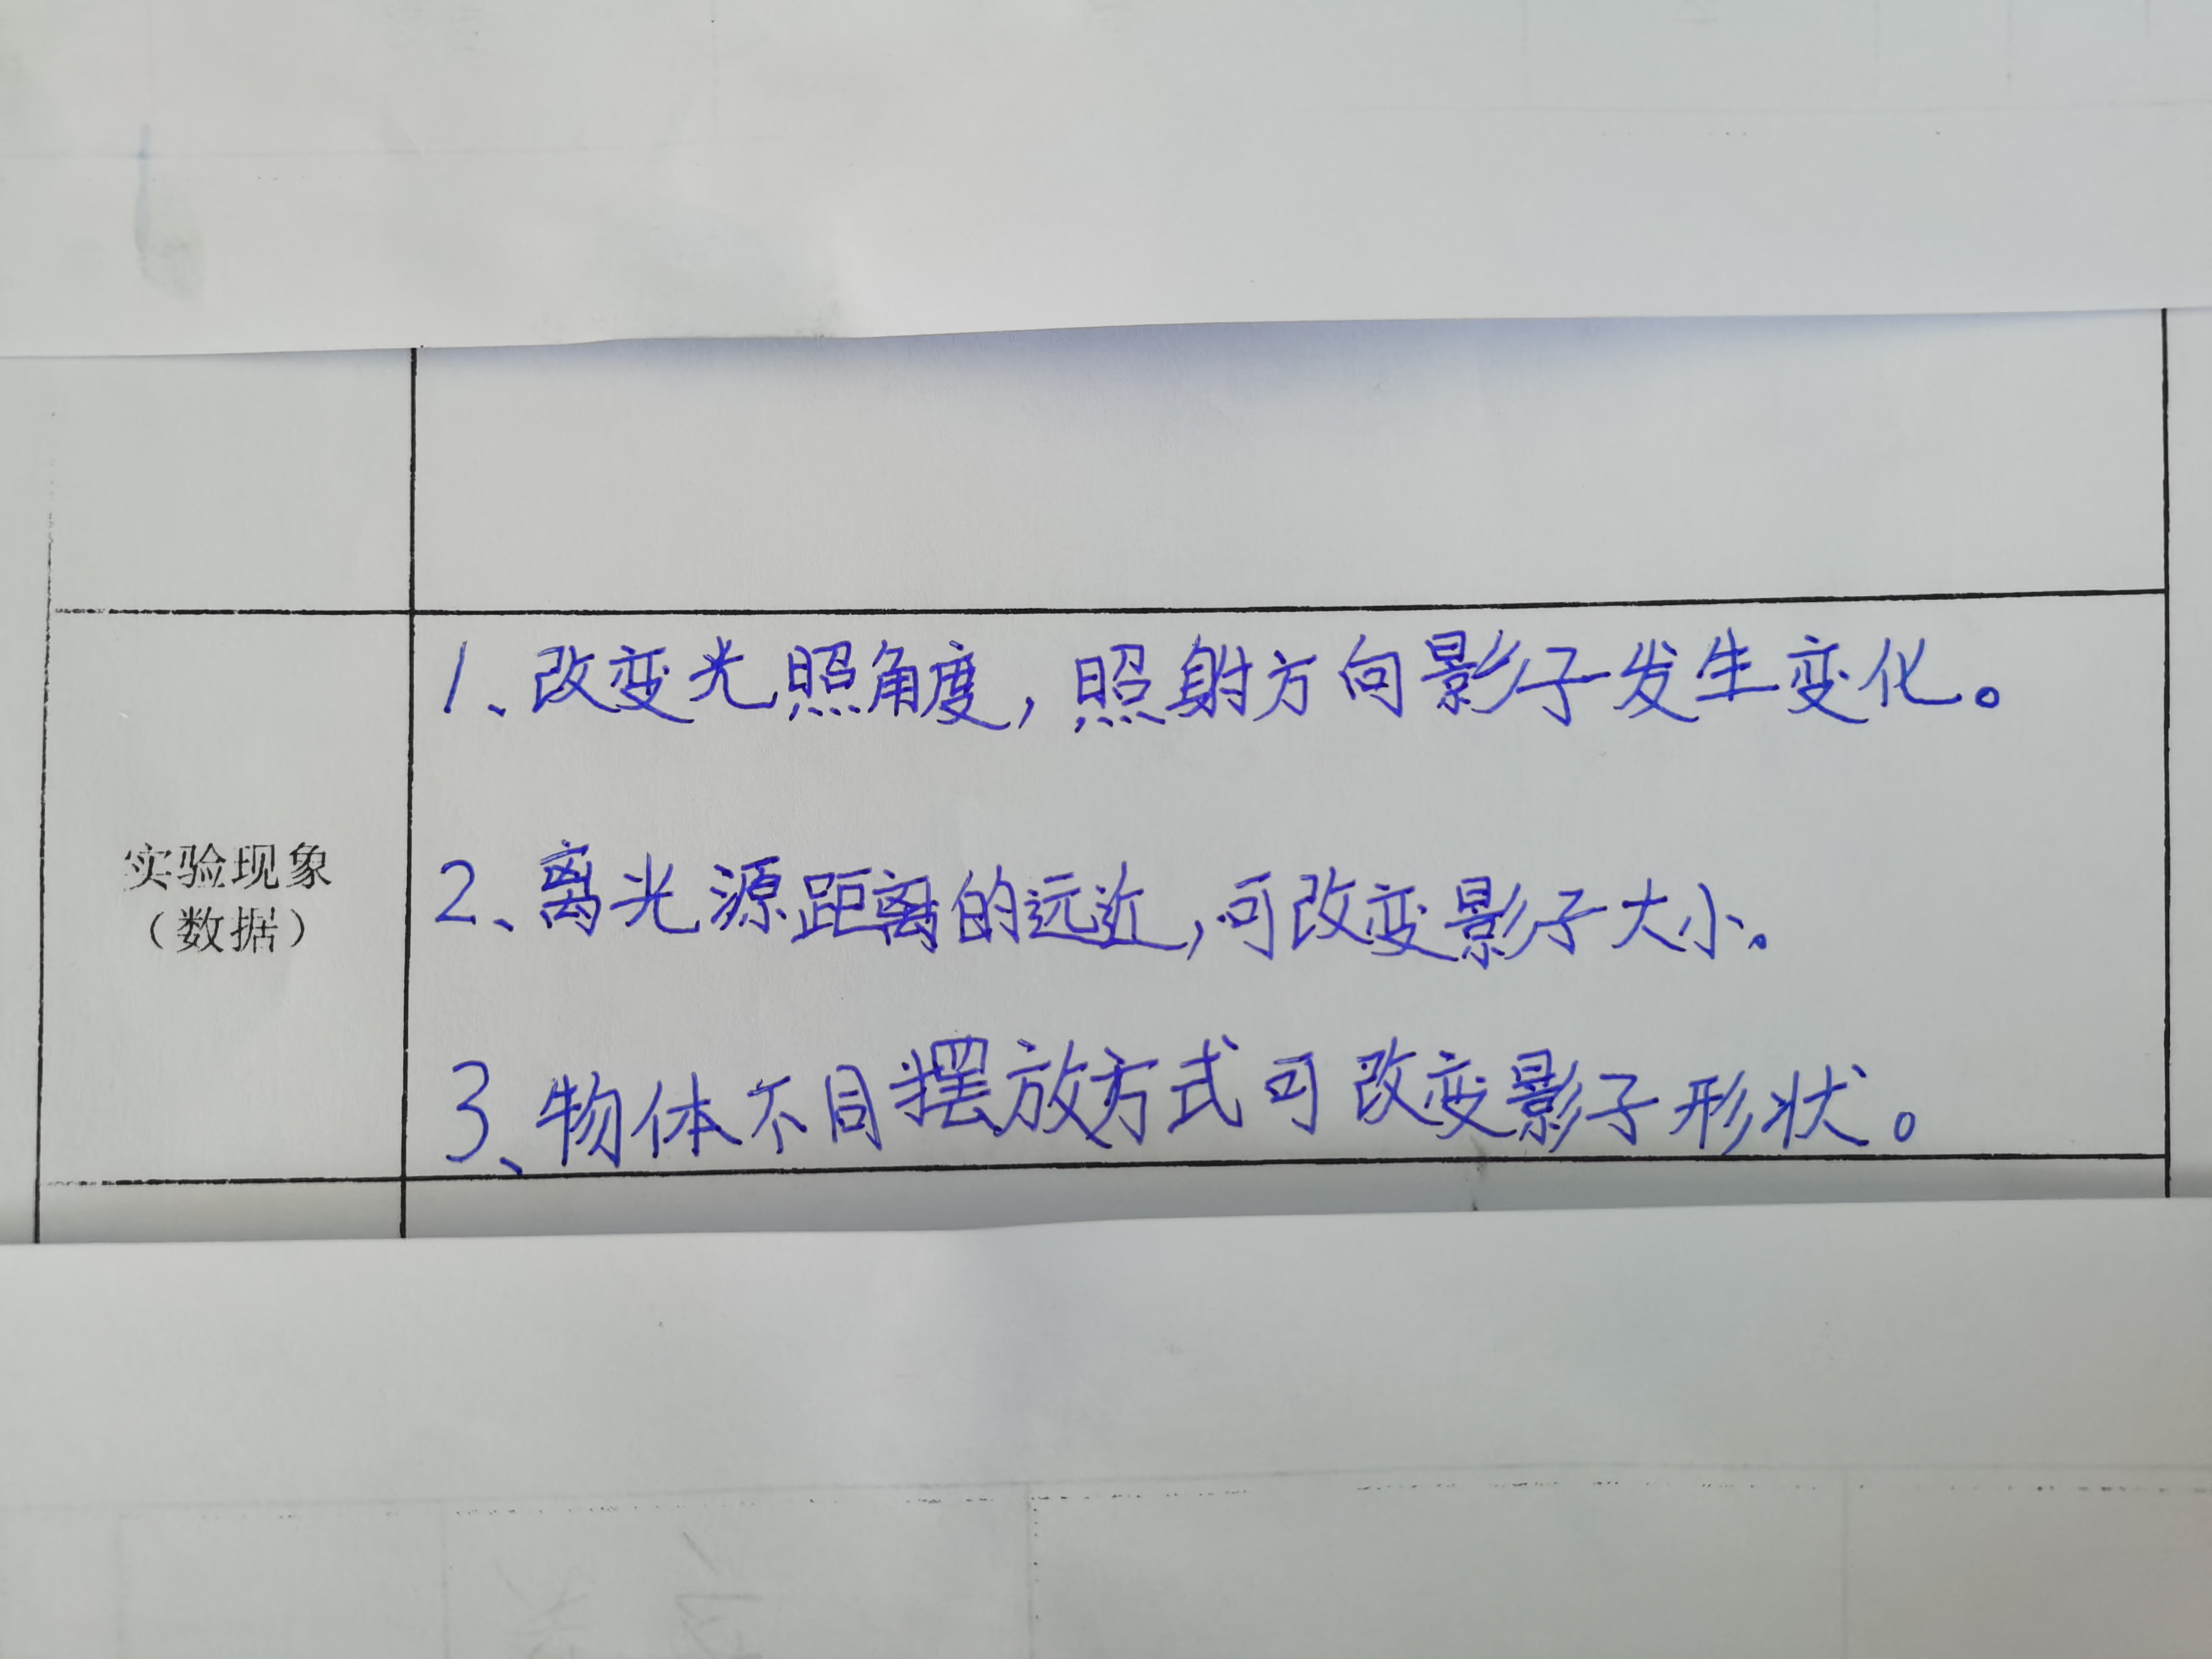 1、改变光照角度，照射方向影子发生变化。
实验现象
（数据）
2、离光源距离的远近，可改变影子大小。
3、物体不同摆放方式可改变影子形状。